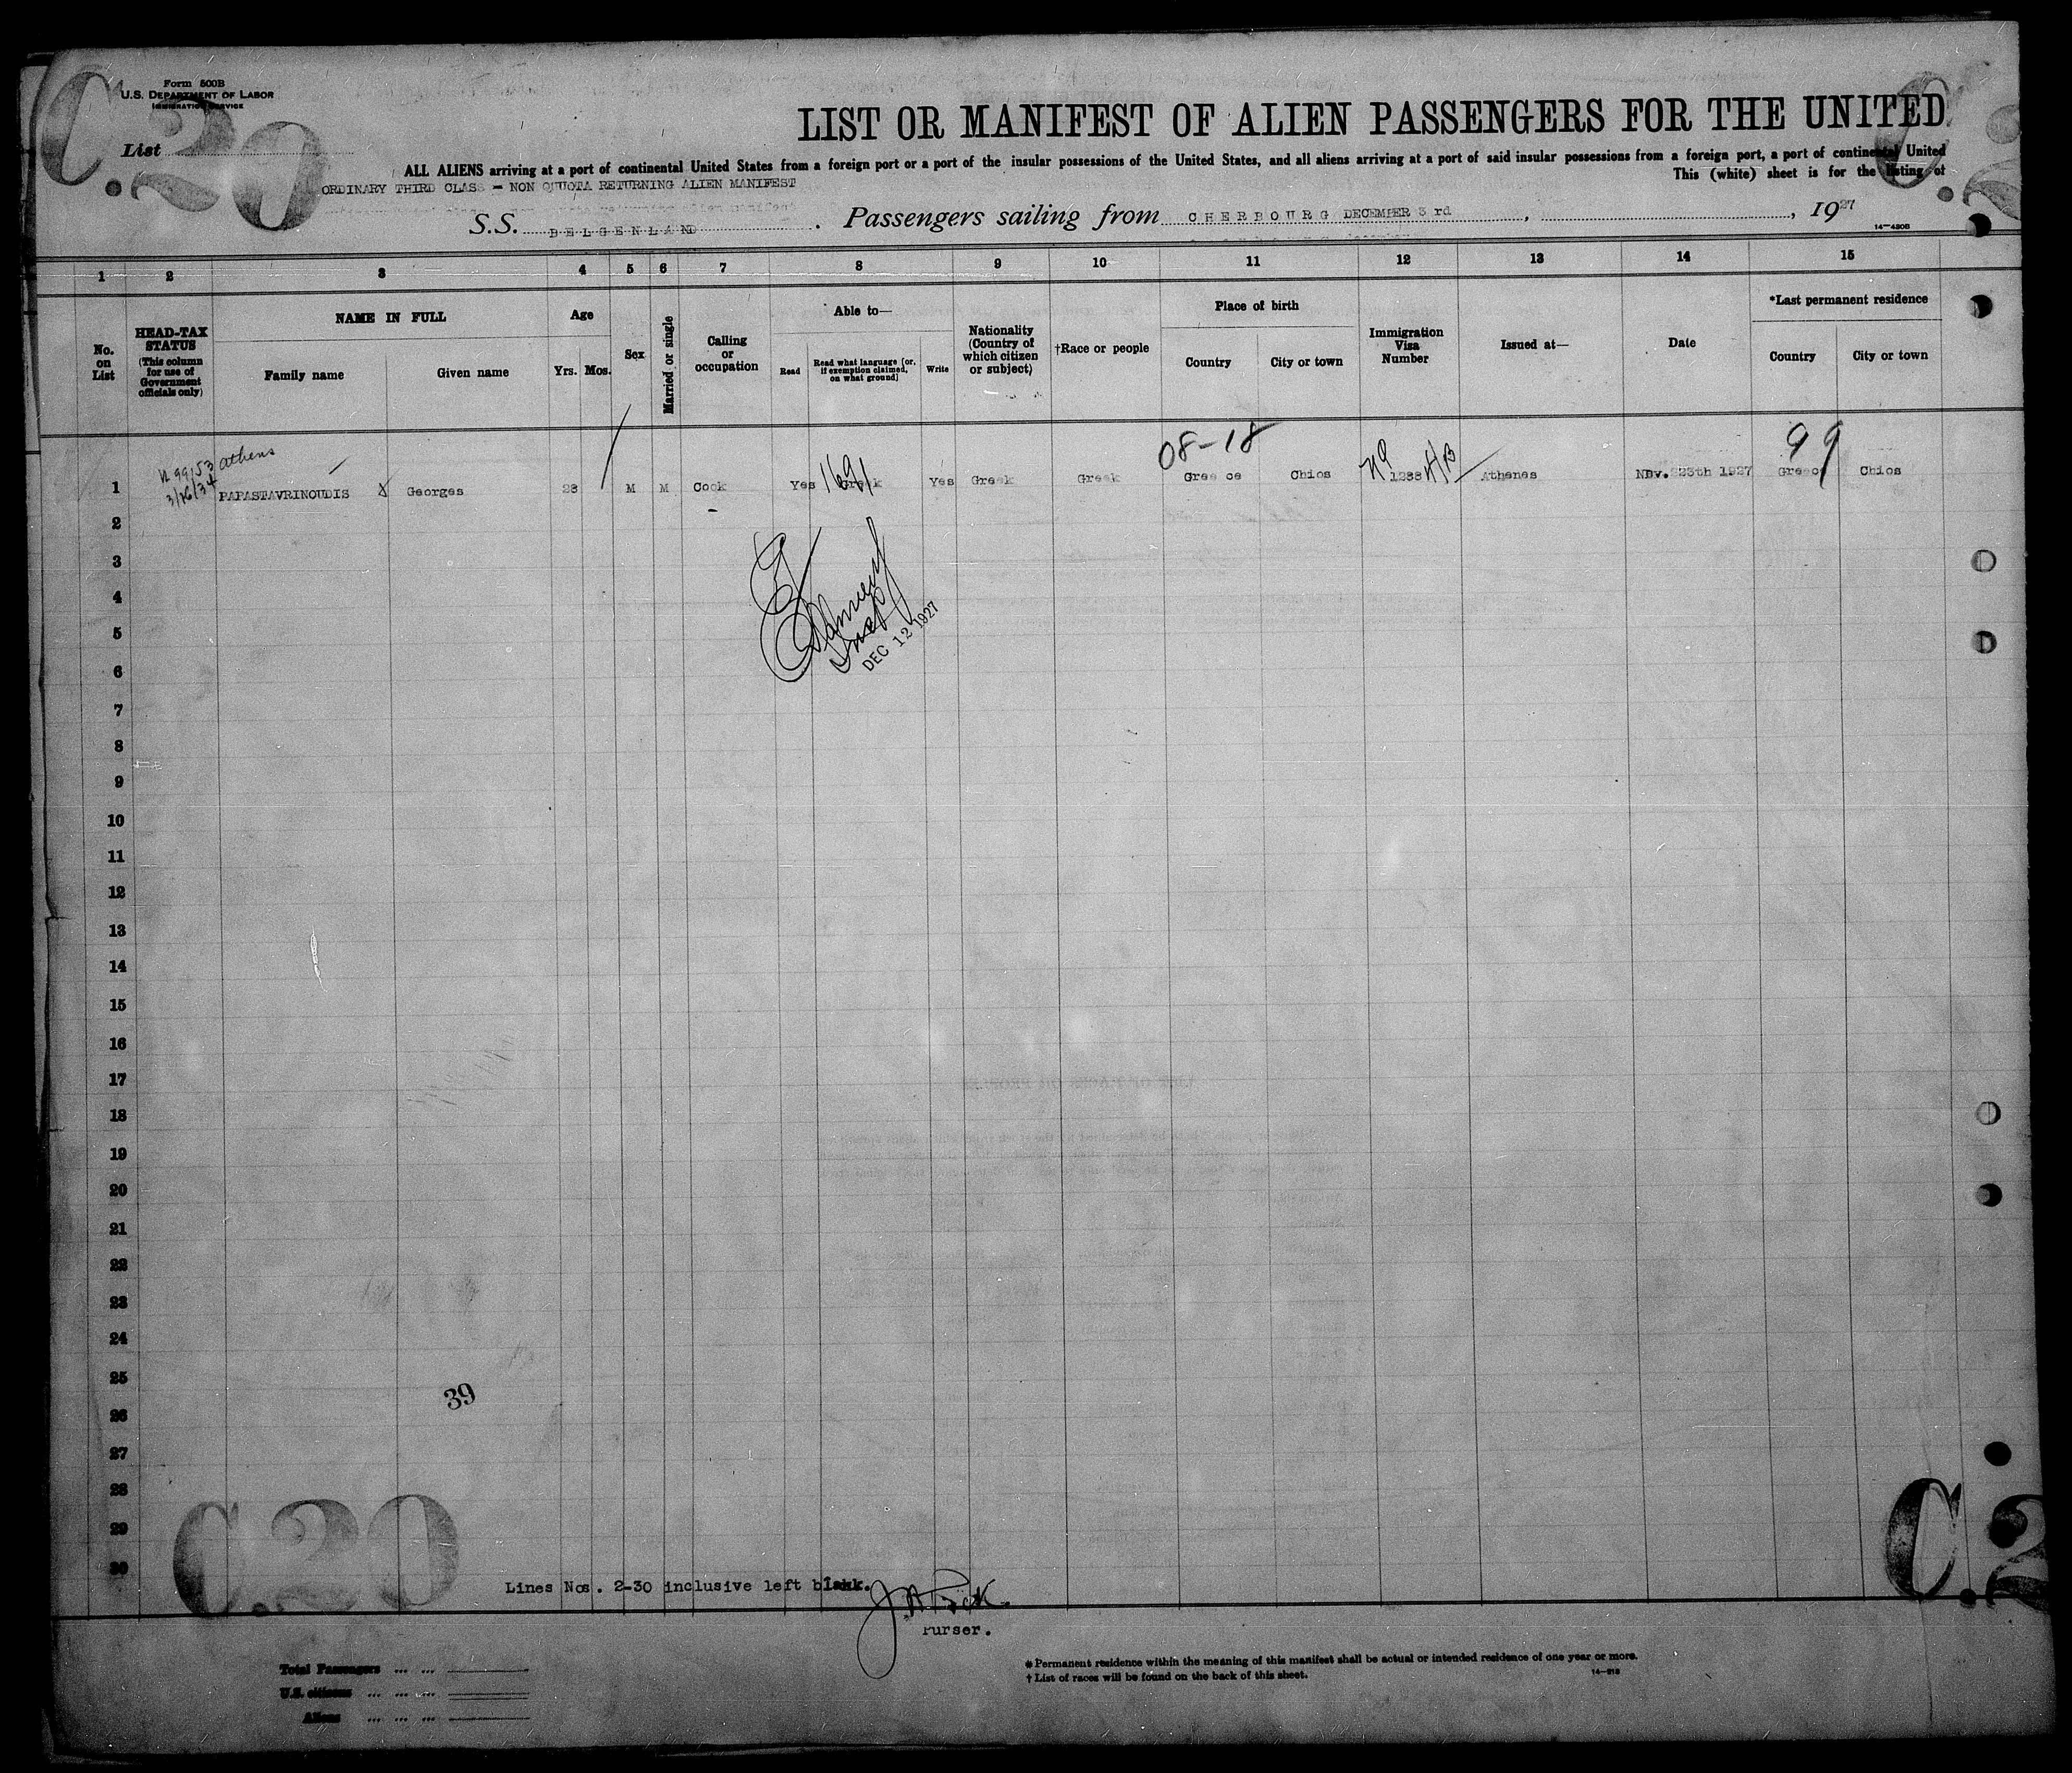 Form 500B
U.S. DEPARTMENT OF LABOR
IMMIGRATION SERVICE
C.20
List
LIST OR MANIFEST OF ALIEN PASSENGERS FOR THE UNITED
ALL ALIENS arriving at a port of continental United States from a foreign port or a port of the insular possessions of the United States, and all aliens arriving at a port of said insular possessions from a foreign port, a port of continental United
This (white) sheet is for the listing of
ORDINARY THIRD CLASS - NON QUUOTA RETURNING ALIEN MANIFEST
S.S. BELGENLAND. Passengers sailing from CHERBOURG DECEMBER 3 rd, , 1927
14—430B
1 2 3 4 5 6 7 8 9 10 11 12 13 14 15
No. on List
HEAD-TAX STATUS (This column for use of Government officials only)
NAME IN FULL
Family name Given name
Age
Yrs. Mos.
Sex
Married or single
Calling or occupation
Able to—
Read Read what language [or, if exemption claimed, on what ground] Write
Nationality (Country of which citizen or subject)
†Race or people
Place of birth
Country City or town
Immigration Visa Number
Issued at—
Date
*Last permanent residence
Country City or town
athens
3/26/34
08-18
99
1 PAPASTAVRINOUDIS X Georges 28 M M Cook Yes Greek Yes Greek Greek Gree ce Chios 1288 Athenes Nov. 23th 1927 Greece Chios
2
3
4
5
DEC 12 1927
6
7
8
9
10
11
12
13
14
15
16
17
18
19
20
21
22
23
24
25
39
26
27
28
29
30
C.20
C.2
Lines Nos. 2-30 inclusive left blank.
Purser.
Total Passengers ... ...
U.S. citizens ... ... ...
Aliens ... ... ...
* Permanent residence within the meaning of this manifest shall be actual or intended residence of one year or more.
† List of races will be found on the back of this sheet.